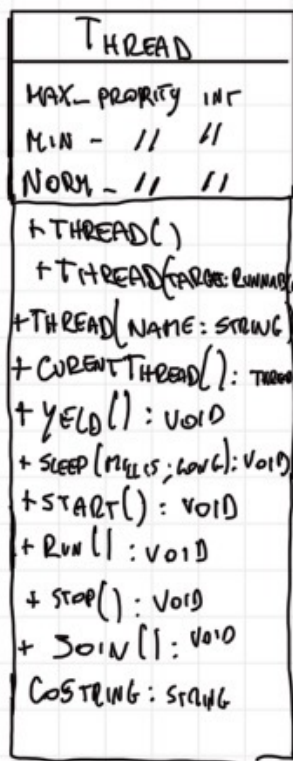 THREAD
MAX_ PRORITY INT
MIN - // //
NORM - // //
+ THREAD()
+ THREAD(TARGET: RUNNABL
+ THREAD(NAME: STRING)
+ CURENTTHREAD(): THREAD
+ YELD(): VOID
+ SLEEP(MILLIS: LONG): VOID
+ START(): VOID
+ RUN(): VOID
+ STOP(): VOID
+ JOIN(): VOID
COSTRING: STRING